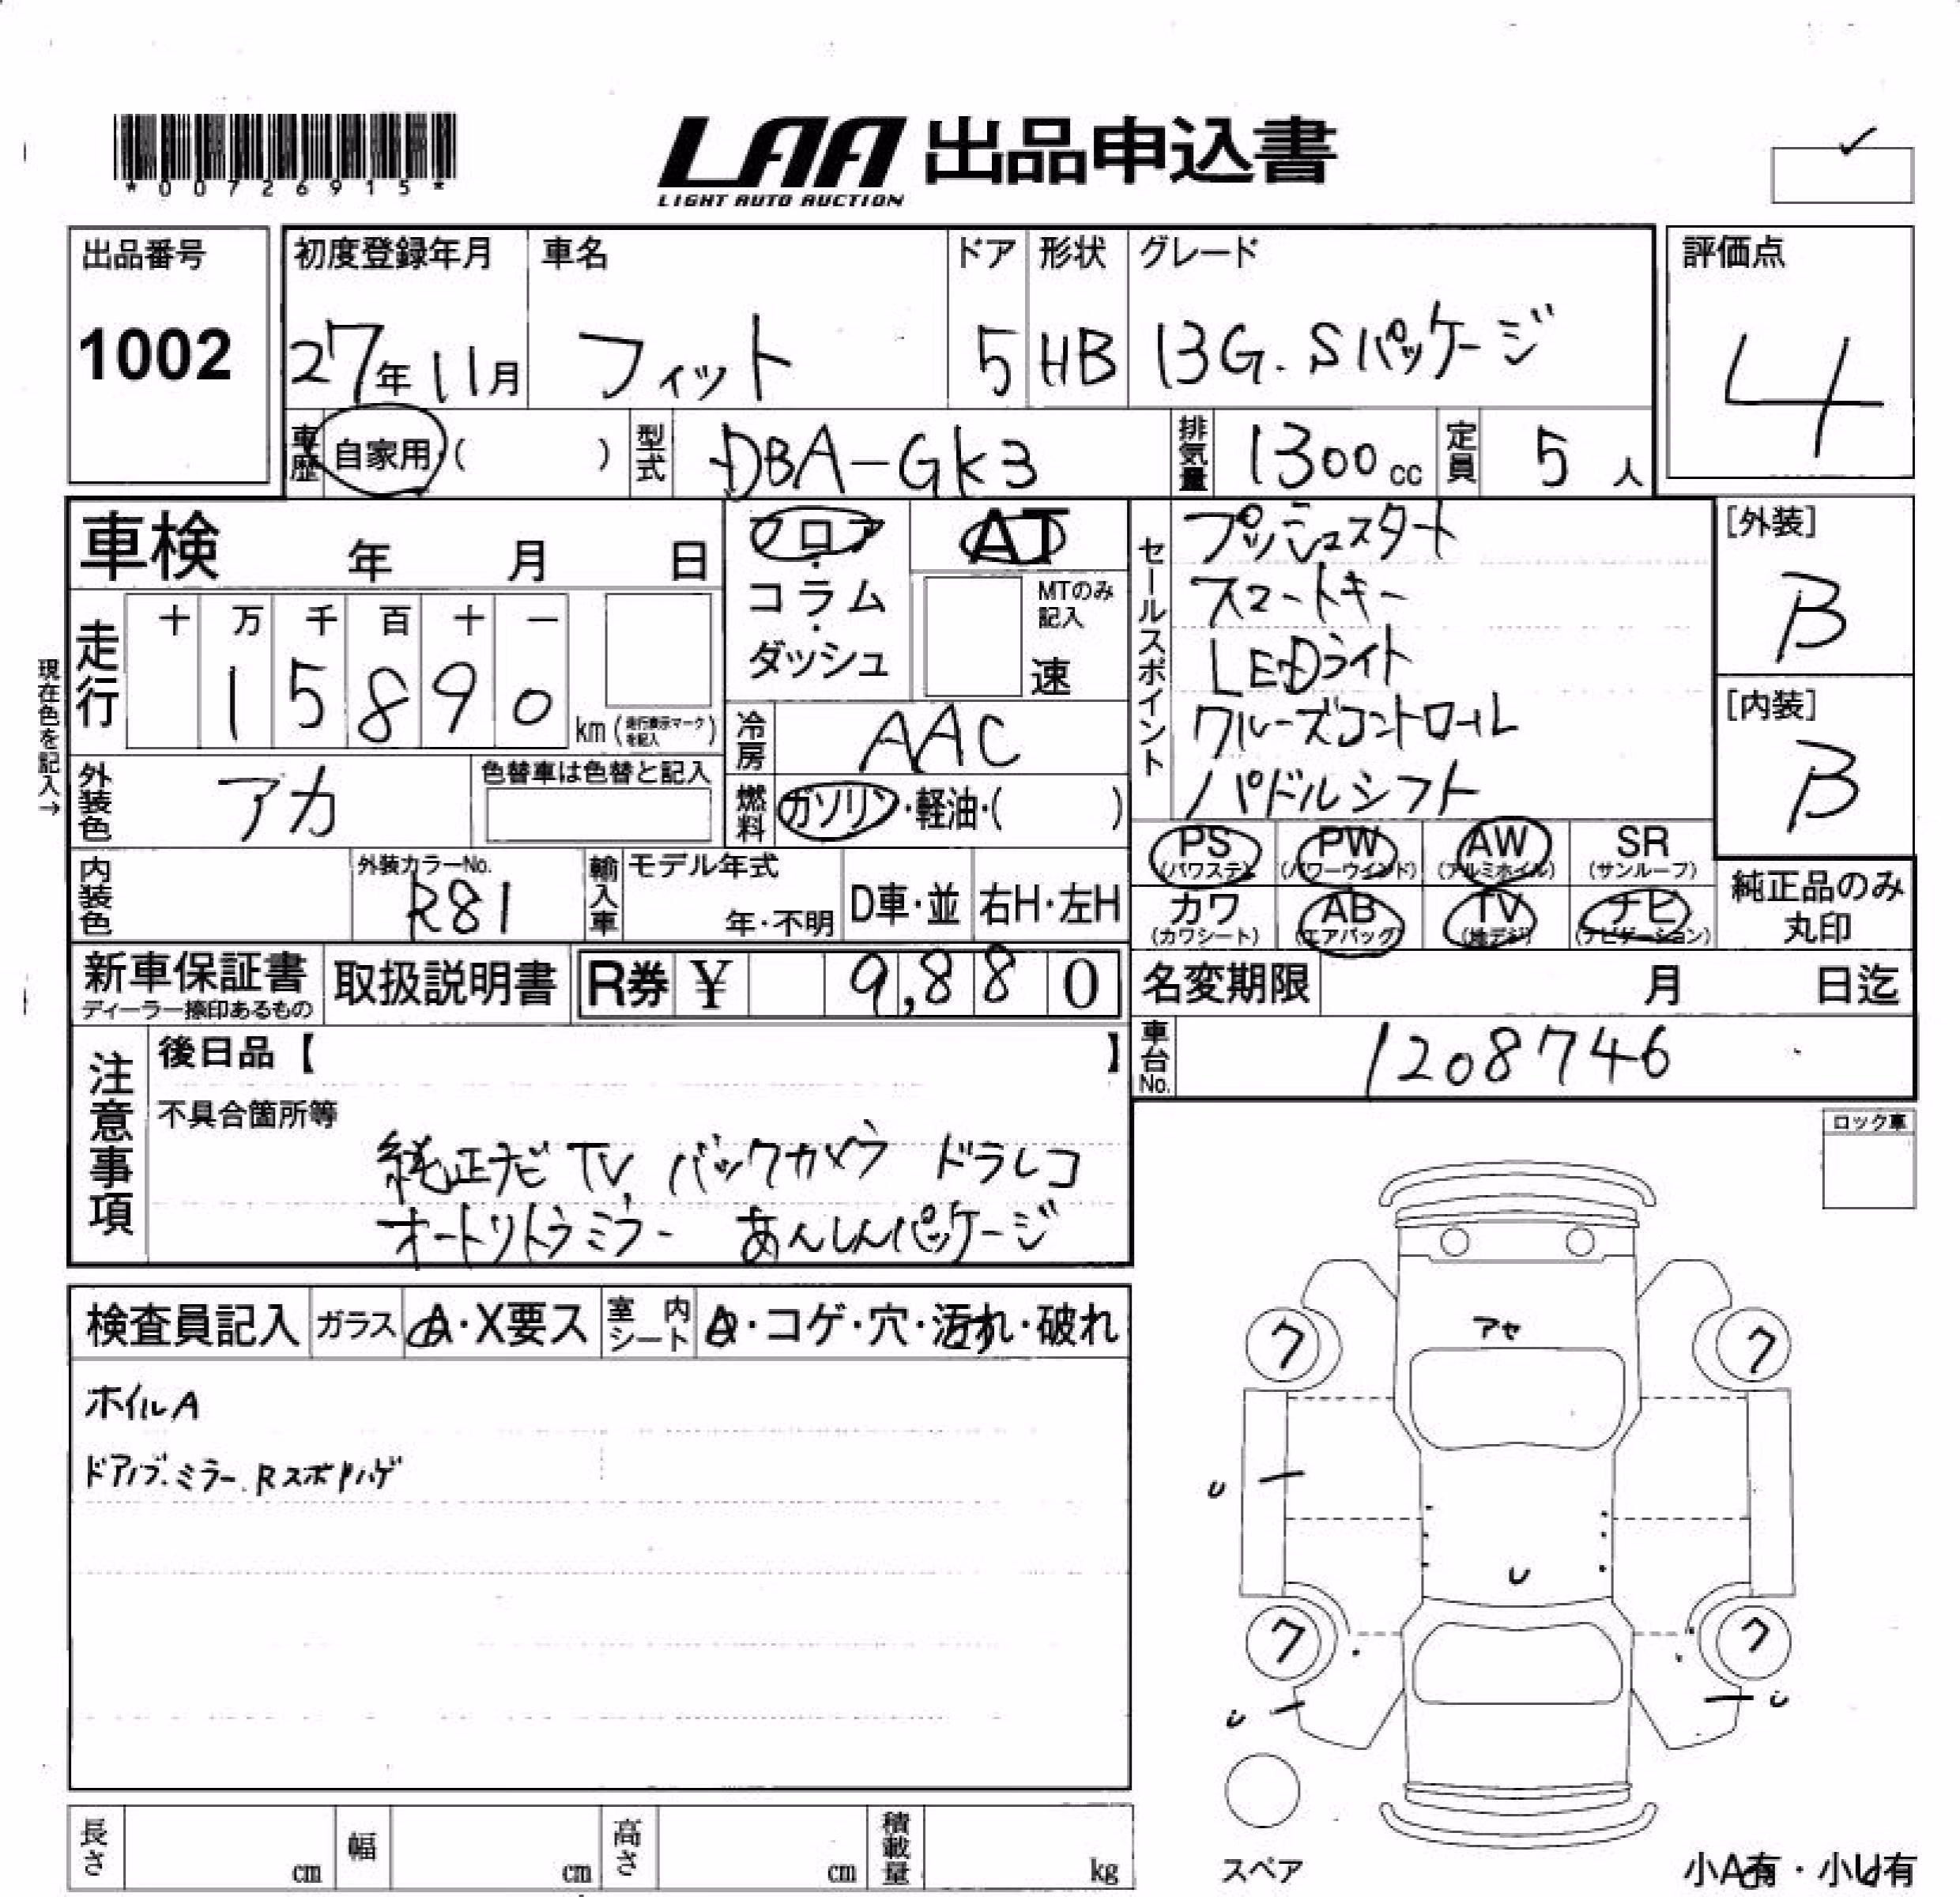 *00726915*
LAA 出品申込書
LIGHT AUTO AUCTION
出品番号
1002
初度登録年月
27年11月
車名
フィット
ドア
5
形状
HB
グレード
13G.Sパッケージ
評価点
4
車歴 自家用・( )
型式 DBA-GK3
排気量 1300cc
定員 5人
車検 年 月 日
フロア・コラム・ダッシュ
AT
MTのみ記入
速
セールスポイント
プッシュスタート
スマートキー
LEDライト
クルーズコントロール
パドルシフト
[外装]
B
[内装]
B
現在色を記入→
走行 十 万 千 百 十 一
15890
km(走行表示マークを記入)
冷房 AAC
外装色 アカ
色替車は色替と記入
燃料 ガソリン・軽油・( )
内装色
外装カラーNo.
R81
輸入車
モデル年式
年・不明
D車・並
右H・左H
PS (パワステ)
PW (パワーウインド)
AW (アルミホイル)
SR (サンルーフ)
カワ (カワシート)
AB (エアバッグ)
TV (地デジ)
ナビ (ナビゲーション)
純正品のみ丸印
新車保証書
ディーラー捺印あるもの
取扱説明書
R券 ¥ 9,880
名変期限 月 日迄
車台No. 1208746
注意事項
後日品【 】
不具合箇所等
純正ナビ TV, バックカメラ ドラレコ
オートリトラミラー あんしんパッケージ
ロック車
検査員記入
ガラス A・X要ス
室内シート A・コゲ・穴・汚れ・破れ
ホイルA
ドアノブ.ミラー.Rスポリハゲ
アセ
ク
ク
U
U
ク
ク
U
U
スペア
小A有・小U有
長さ cm
幅 cm
高さ cm
積載量 kg